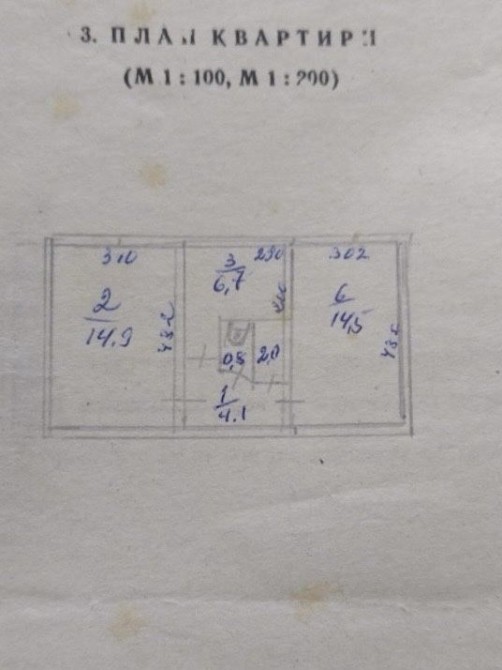 3. ПЛАН КВАРТИРИ
(М 1 : 100, М 1 : 200)
310
3
290
302
2
6,7
6
14.9
14,5
0,8
2,0
1
4.1